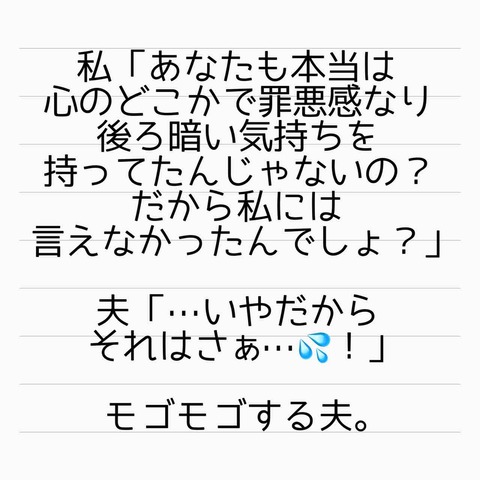 私「あなたも本当は
心のどこかで罪悪感なり
後ろ暗い気持ちを
持ってたんじゃないの？
だから私には
言えなかったんでしょ？」
夫「…いやだから
それはさぁ…💦！」
モゴモゴする夫。